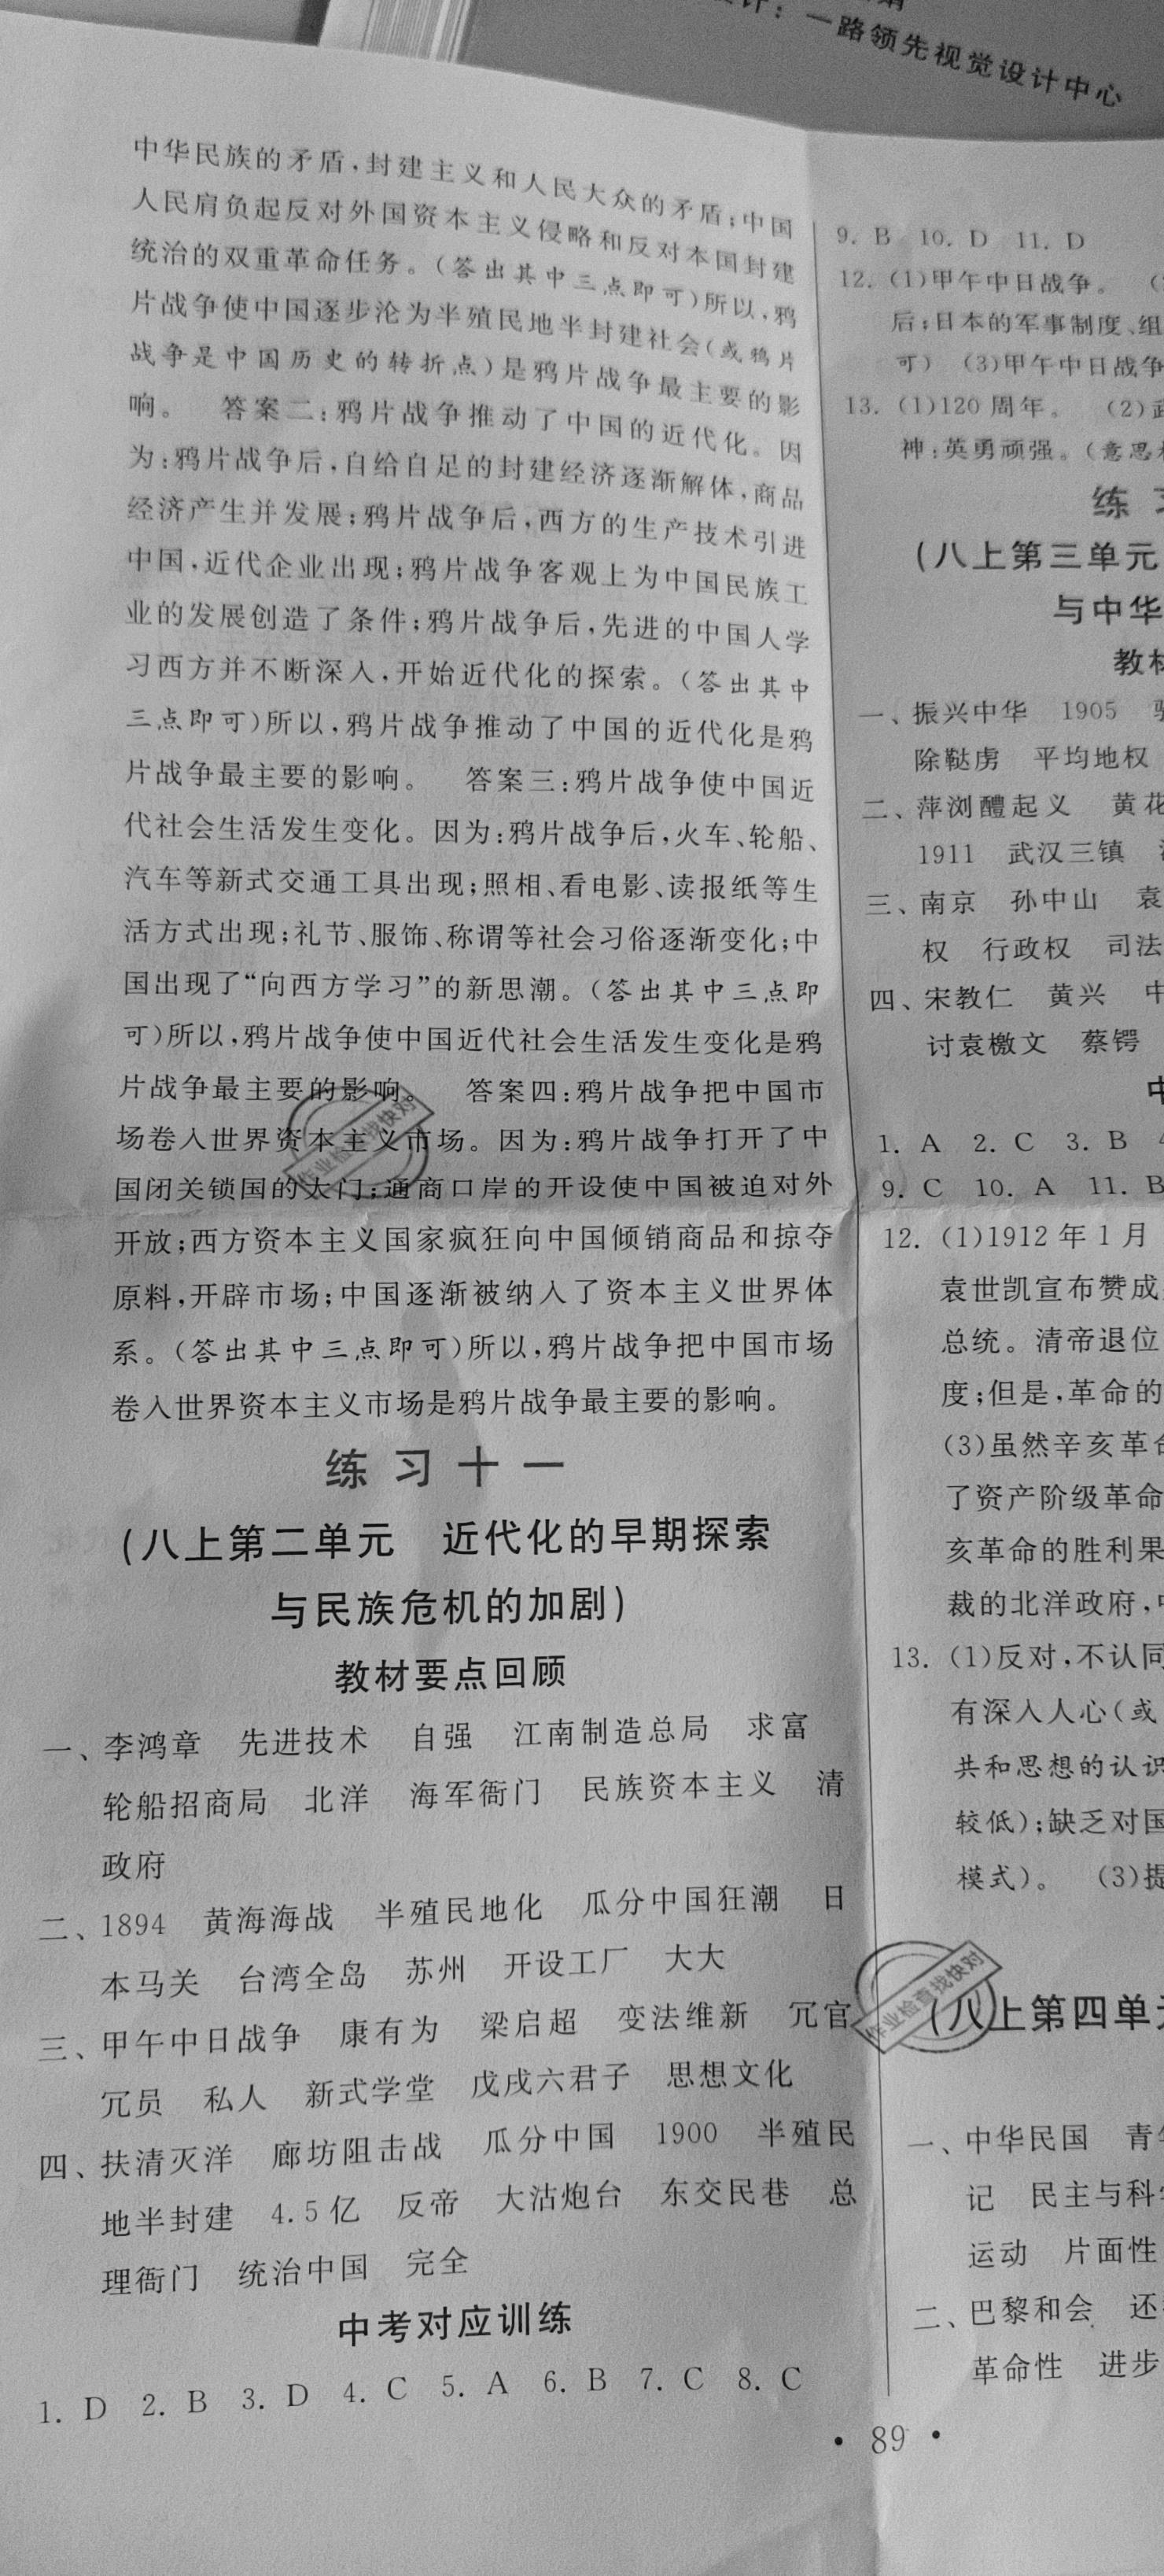 计：一路领先视觉设计中心
中华民族的矛盾,封建主义和人民大众的矛盾;中国
人民肩负起反对外国资本主义侵略和反对本国封建
统治的双重革命任务。(答出其中三点即可)所以,鸦
片战争使中国逐步沦为半殖民地半封建社会(或鸦片
战争是中国历史的转折点)是鸦片战争最主要的影
响。 答案二:鸦片战争推动了中国的近代化。因
为:鸦片战争后,自给自足的封建经济逐渐解体,商品
经济产生并发展;鸦片战争后,西方的生产技术引进
中国,近代企业出现;鸦片战争客观上为中国民族工
业的发展创造了条件;鸦片战争后,先进的中国人学
习西方并不断深入,开始近代化的探索。(答出其中
三点即可)所以,鸦片战争推动了中国的近代化是鸦
片战争最主要的影响。 答案三:鸦片战争使中国近
代社会生活发生变化。因为:鸦片战争后,火车、轮船、
汽车等新式交通工具出现;照相、看电影、读报纸等生
活方式出现;礼节、服饰、称谓等社会习俗逐渐变化;中
国出现了“向西方学习”的新思潮。(答出其中三点即
可)所以,鸦片战争使中国近代社会生活发生变化是鸦
片战争最主要的影响。 答案四:鸦片战争把中国市
场卷入世界资本主义市场。因为:鸦片战争打开了中
国闭关锁国的大门;通商口岸的开设使中国被迫对外
开放;西方资本主义国家疯狂向中国倾销商品和掠夺
原料,开辟市场;中国逐渐被纳入了资本主义世界体
系。(答出其中三点即可)所以,鸦片战争把中国市场
卷入世界资本主义市场是鸦片战争最主要的影响。
练习十一
(八上第二单元 近代化的早期探索
与民族危机的加剧)
教材要点回顾
一、李鸿章 先进技术 自强 江南制造总局 求富
轮船招商局 北洋 海军衙门 民族资本主义 清
政府
二、1894 黄海海战 半殖民地化 瓜分中国狂潮 日
本马关 台湾全岛 苏州 开设工厂 大大
三、甲午中日战争 康有为 梁启超 变法维新 冗官
冗员 私人 新式学堂 戊戌六君子 思想文化
四、扶清灭洋 廊坊阻击战 瓜分中国 1900 半殖民
地半封建 4.5亿 反帝 大沽炮台 东交民巷 总
理衙门 统治中国 完全
中考对应训练
1. D 2. B 3. D 4. C 5. A 6. B 7. C 8. C
9. B 10. D 11. D
12. (1)甲午中日战争。
后;日本的军事制度、组
可) (3)甲午中日战争
13. (1)120周年。 (2)
神:英勇顽强。(意思
练
(八上第三单元
与中华
教材
一、振兴中华 1905
除鞑虏 平均地权
二、萍浏醴起义 黄花
1911 武汉三镇
三、南京 孙中山 袁
权 行政权 司法
四、宋教仁 黄兴 中
讨袁檄文 蔡锷
中
1. A 2. C 3. B
9. C 10. A 11. B
12. (1)1912年1月
袁世凯宣布赞成
总统。清帝退位
度;但是,革命的
(3)虽然辛亥革命
了资产阶级革命
亥革命的胜利果
裁的北洋政府,中
13. (1)反对,不认同
有深入人心(或
共和思想的认识
较低);缺乏对国
模式)。 (3)提
(八上第四单元
一、中华民国 青年
记 民主与科学
运动 片面性
二、巴黎和会 还
革命性 进步
• 89 •
作业检查找快对
作业检查找快对